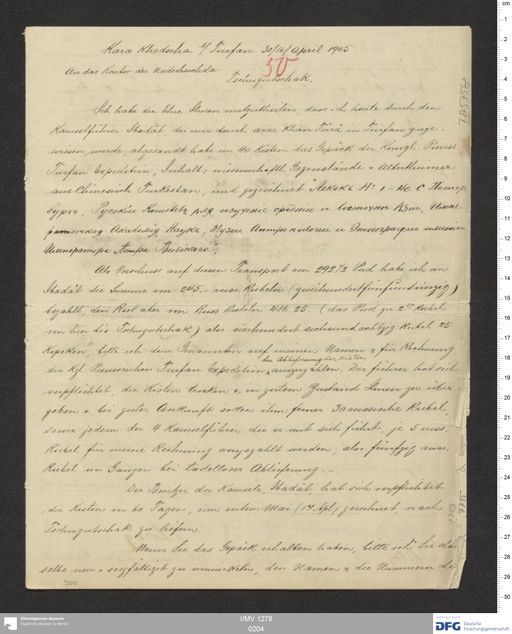 Kara Khodscha b/ Turfan 30/16/ April 1905
50
An das Kontor der Nadeschda
Tschugutschak.
Ich habe die Ehre Ihnen mitzutheilen, dass ich heute durch den
Kameelführer Ibadât der mir durch Khan Türä in Turfan zuge-
wiesen wurde, abgesandt habe in 40 Kisten das Gepäck der Königl. Preuss.
Turfan Expedition, Inhalt: wissenschaftl. Gegenstände & Alterthümer
aus Chinesisch Turkestan, und gezeichnet "Лекокъ № 1 - 40 С Петер
бургъ, Русскій Комитетъ для изученія средней и восточной Азіи, Импе
раторская Академія Наукъ, Музей Антропологіи и Этнографіи имени
Императора Петра Великаго"
Als Vorschuss auf diesen Transport von 292 1/2 Pud habe ich an
Ibadât die Summe von 245.- russ Rubeln (zweihundertfünfundvierzig)
bezahlt, den Rest aber von Russ Rubeln 486.25. (das Pud zu 2 50 Rubel
von hier bis Tschugutschak) also vierhundert sechsundachtzig Rubel 25
Kopeken, bitte ich dem Genannten auf meinen Namen & für Rechnung
bei Ablieferung der Kisten
der Kgl. Preussischen Turfan Expedition auszuzahlen. Der Führer hat sich
verpflichtet die Kisten trocken & in gutem Zustand Ihnen zu über-
geben & bei guter Ankunft sollen ihm ferner 30 russische Rubel,
sowie jedem der 4 Kameelführer, die er mit sich führt, je 5 russ.
Rubel für meine Rechnung ausgezahlt werden, also fünfzig russ.
Rubel im Ganzen bei tadelloser Ablieferung. -
Der Besitzer der Kameele, Ibadât, hat sich verpflichtet
die Kisten in 60 Tagen, vom ersten Mai (17 Apl) gerechnet, nach
Tschugutschak zu liefern.
Wenn Sie das Gepäck erhalten haben, bitte ich Sie das
selbe neu & sorgfältigst zu umwickeln, den Namen & die Nummern
200
Ethnologisches Museum
Staatliche Museen zu Berlin
I/MV 1278
0204
DFG Deutsche
Forschungsgemeinschaft